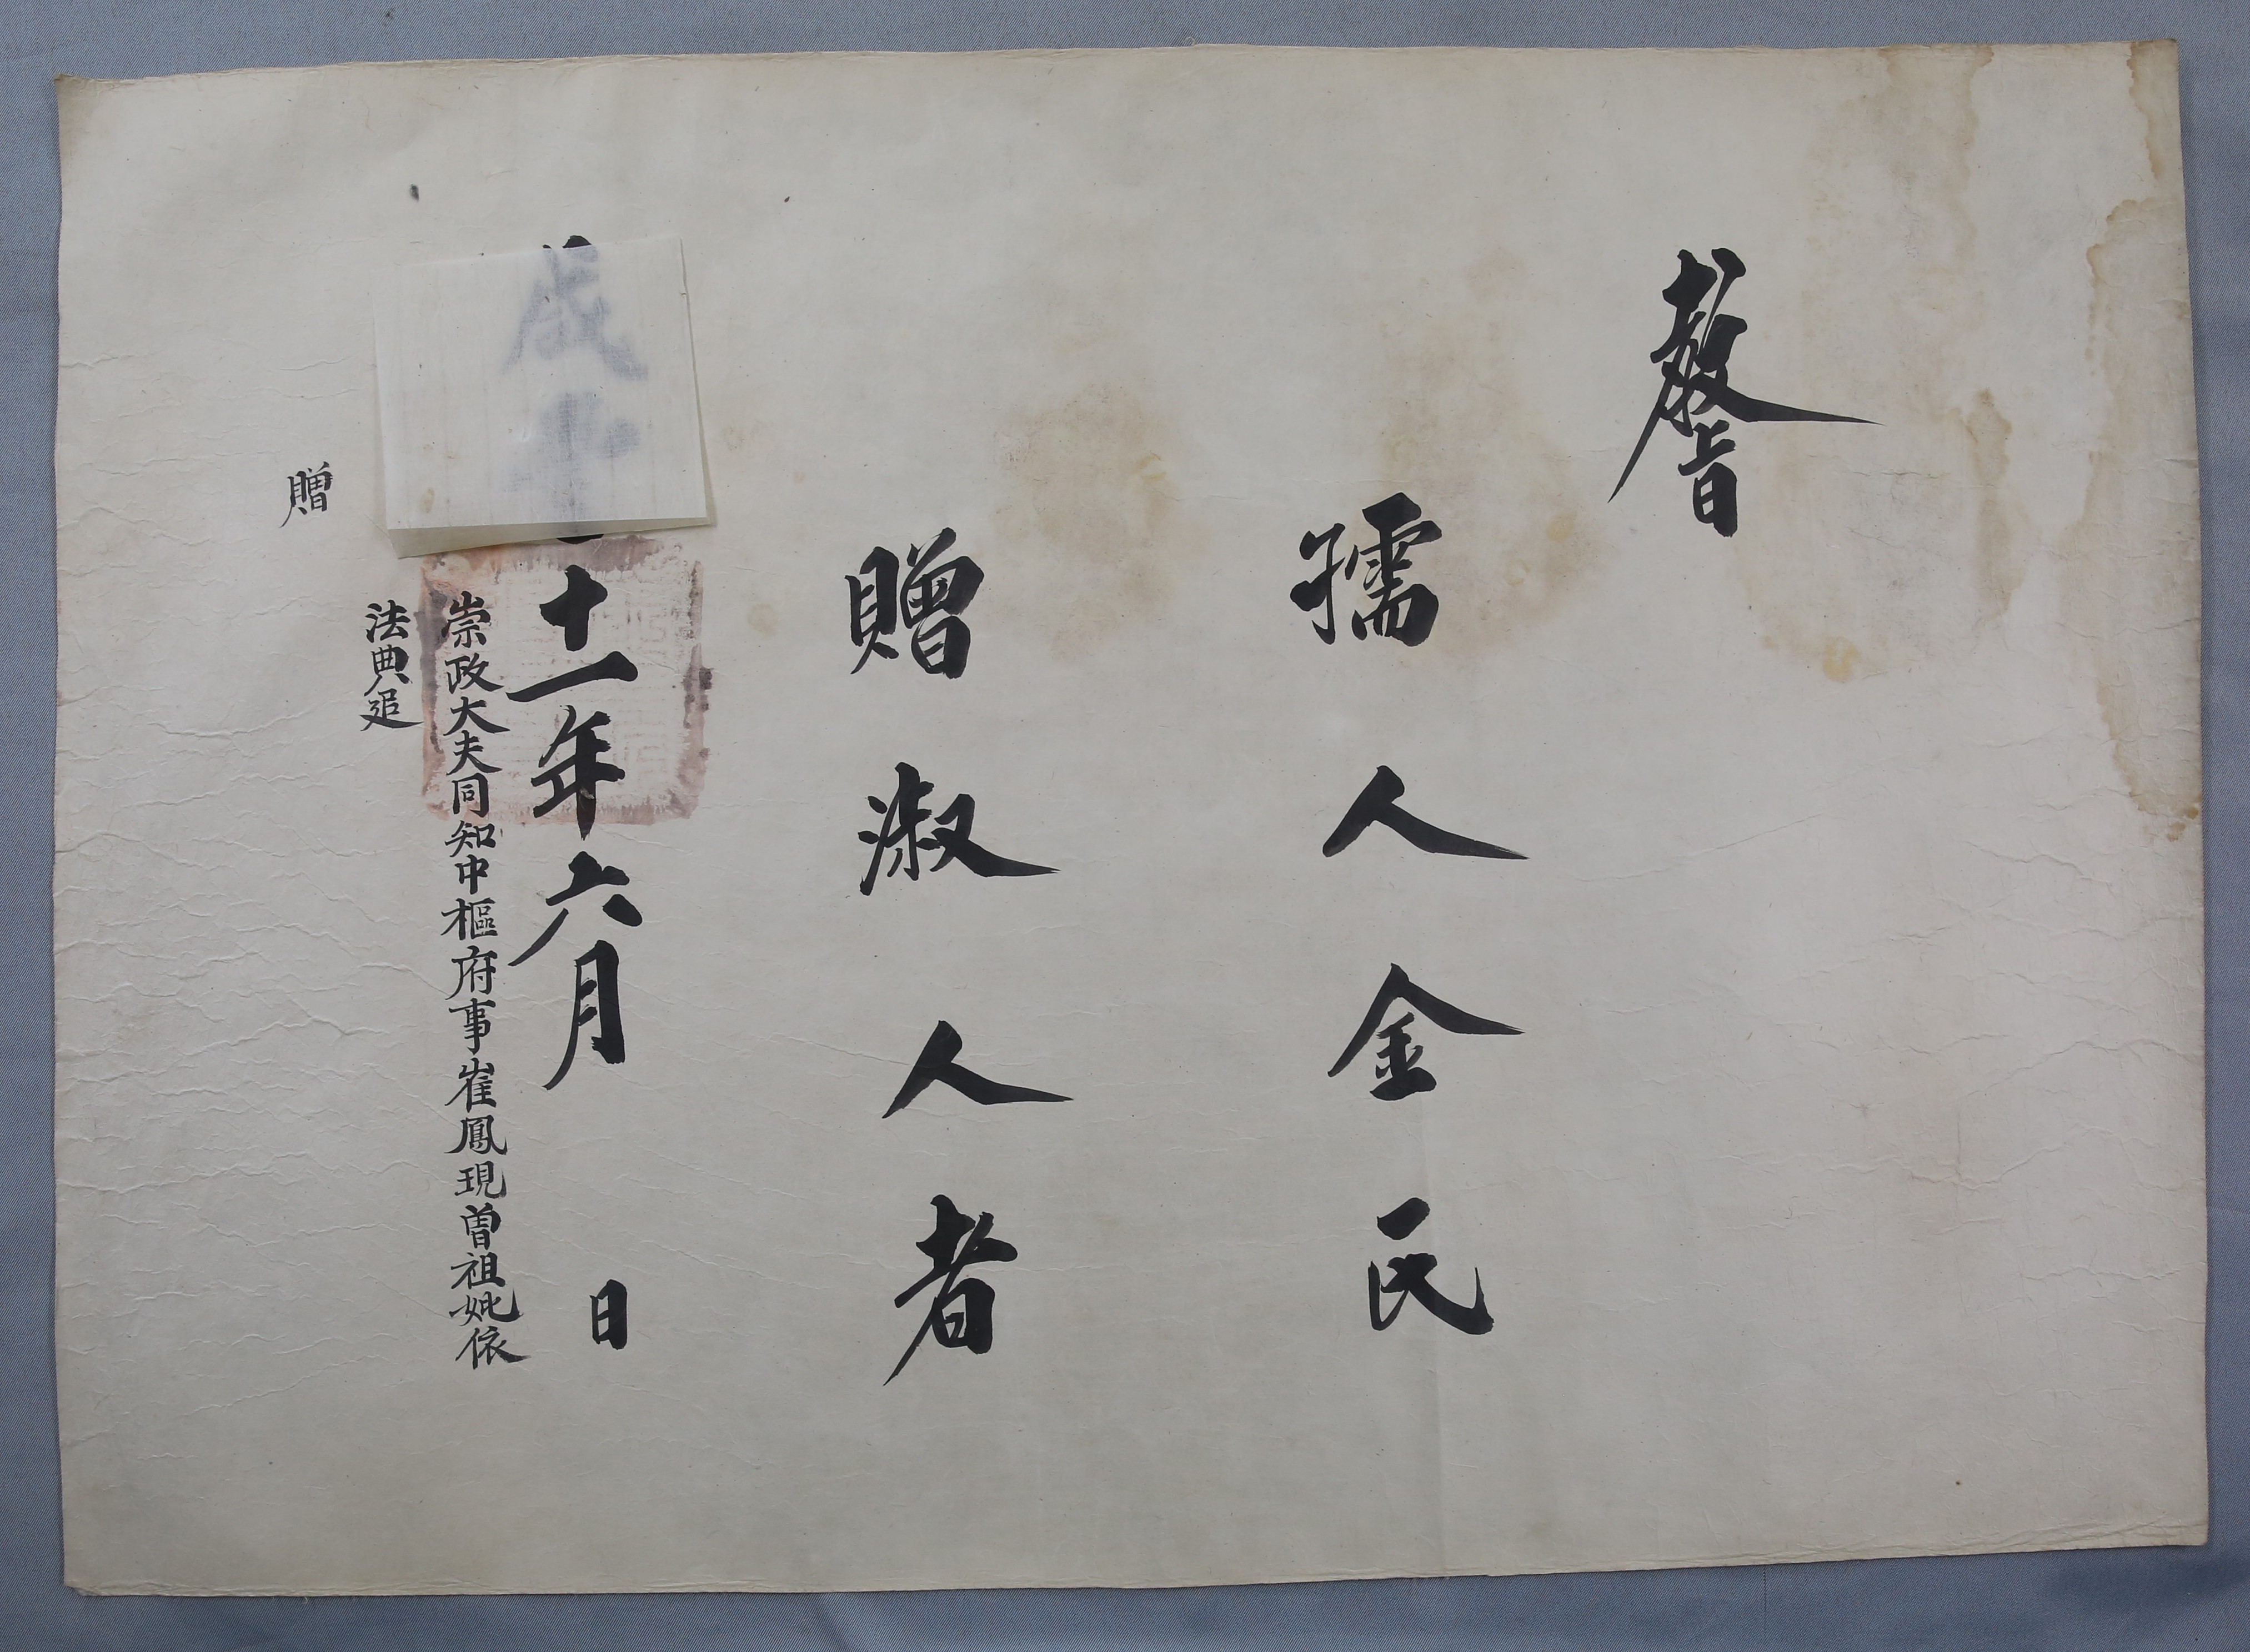 敎旨
孺人金氏
贈淑人者
咸豊十一年六月 日
崇政大夫同知中樞府事崔鳳現曾祖妣依
法典追
贈